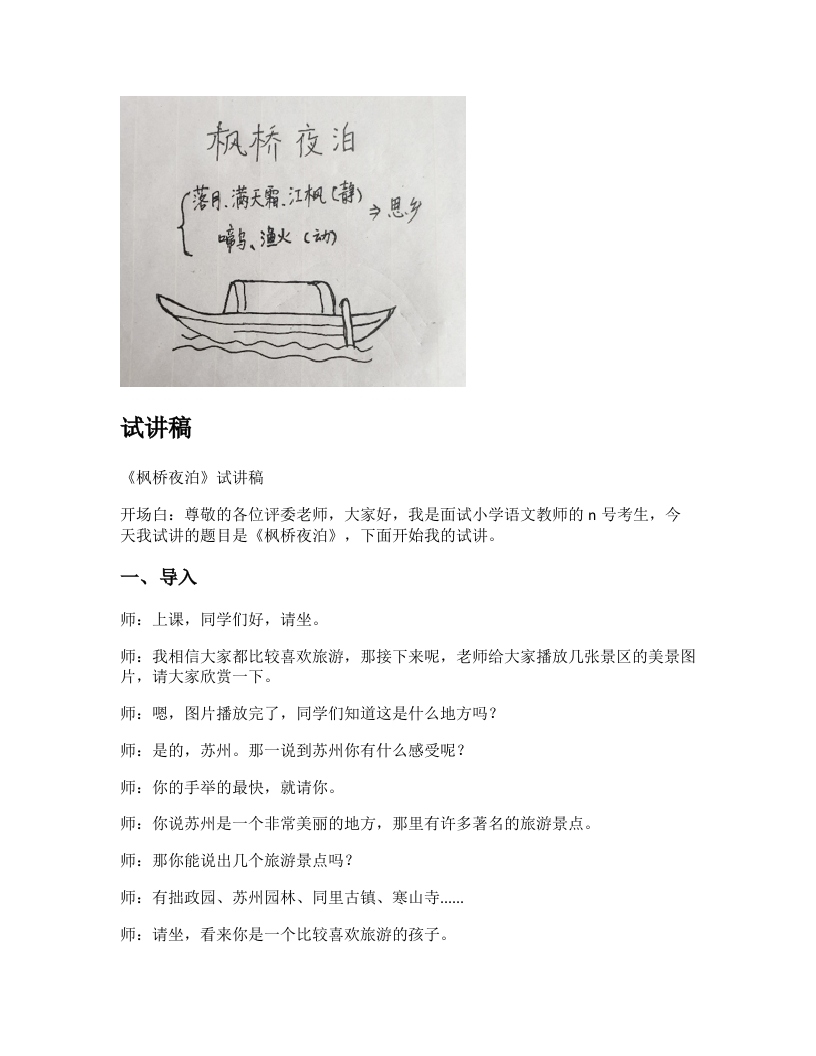 枫桥夜泊
落月、满天霜、江枫(静)
⇒思乡
啼乌、渔火(动)
试讲稿
《枫桥夜泊》试讲稿
开场白：尊敬的各位评委老师，大家好，我是面试小学语文教师的 n 号考生，今
天我试讲的题目是《枫桥夜泊》，下面开始我的试讲。
一、导入
师：上课，同学们好，请坐。
师：我相信大家都比较喜欢旅游，那接下来呢，老师给大家播放几张景区的美景图
片，请大家欣赏一下。
师：嗯，图片播放完了，同学们知道这是什么地方吗？
师：是的，苏州。那一说到苏州你有什么感受呢？
师：你的手举的最快，就请你。
师：你说苏州是一个非常美丽的地方，那里有许多著名的旅游景点。
师：那你能说出几个旅游景点吗？
师：有拙政园、苏州园林、同里古镇、寒山寺......
师：请坐，看来你是一个比较喜欢旅游的孩子。